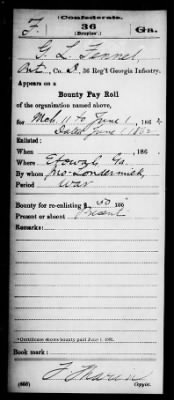 (Confederate.)
F. 36 Ga.
(Broyles'.)
G. L. Fennel
Pvt., Co. A, 36 Reg't Georgia Infantry.
Appears on a
Bounty Pay Roll
of the organization named above,
for Mch 11 to June 1, 186 2.
Dated June 1 1862
Enlisted:
When , 186 .
Where Etowah Ga.
By whom Jno.
Period War
Bounty for re-enlisting $ 50 100
Present or absent Present
Remarks:
*Certificate shows bounty paid June 1, 1862.
Book mark:
(660) Copyist.